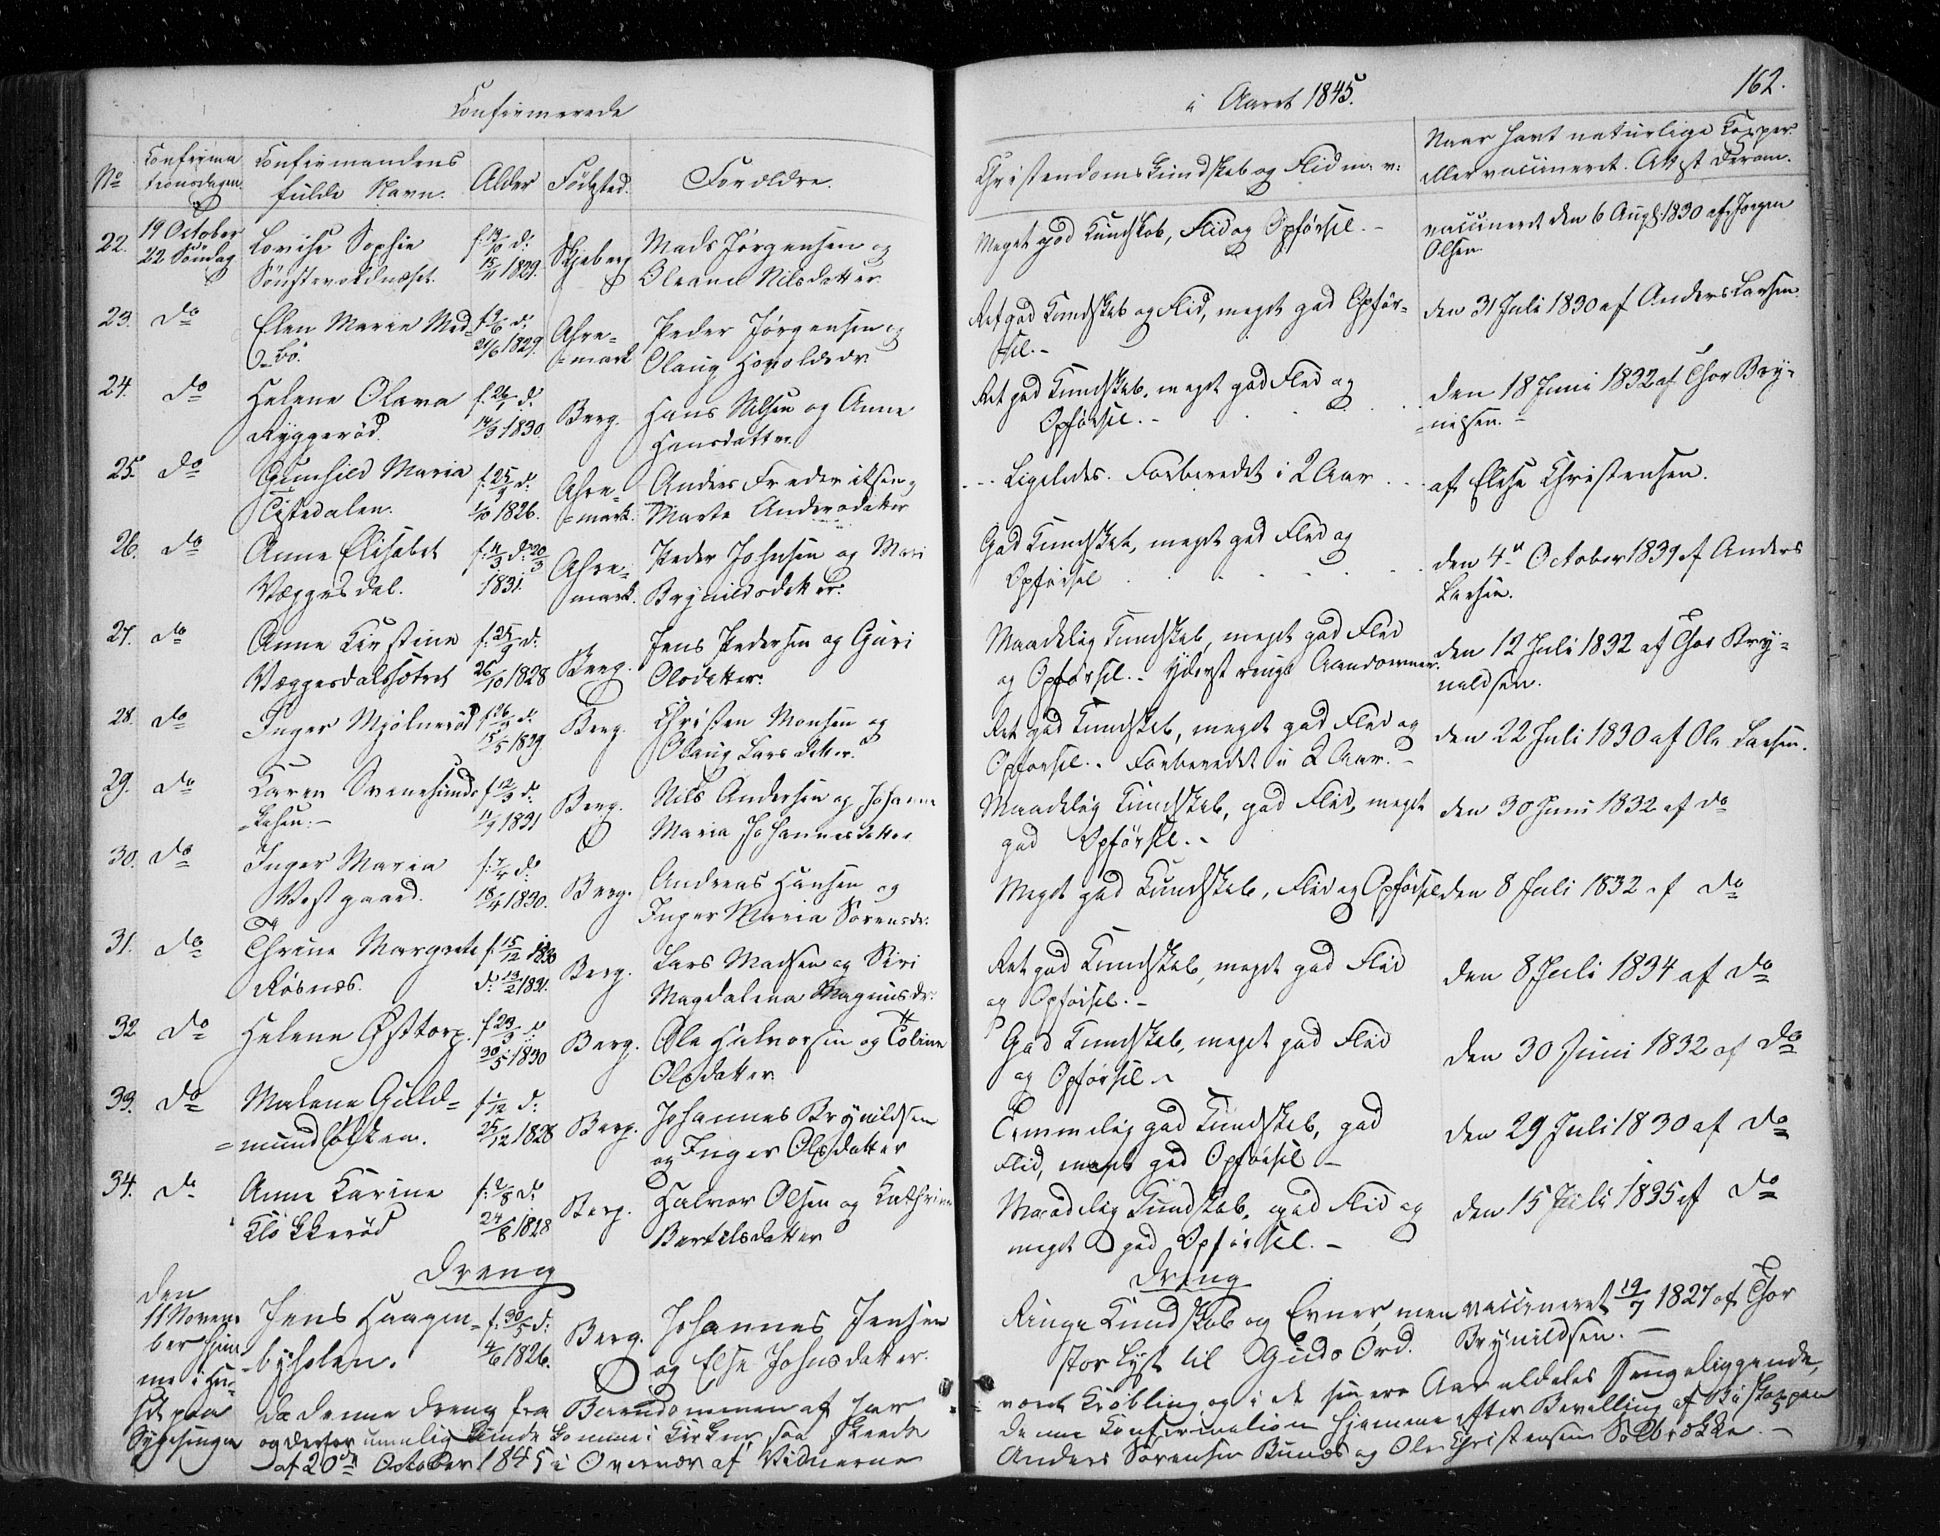 Confirmerede
i Aaret 1845.
162.
No
Confirma
tionsdagen.
Confirmandens
fulde Navn.
Alder
Födested.
Forældre.
Christendoms Kundskab og Flid m. v:
Naar havt naturlige Kopper
eller vaccineret. Attest derom.
22.
19 October
22 Søndag
Lovise Sophie
f. 19/10 d:
15/11 1829.
Skjeberg
Mads Jørgensen og
Oleane Nilsdatter
Meget god Kundskab, Flid og Opførsel. -
vaccineret den 6 Augs: 1830 af Jørgen
Olsen.
23.
do
Elen Maria
1829.
Ahre=
=mark
Peder Jørgensen og
Olaug
Ret god Kundskab og Flid, meget god Opfør-
sel. -
den 31 Juli 1830 af Anders Larsen.
24.
do
Helene Olava
Ryggerød.
f. 26/1 d.
14/3 1830
Berg.
Hans Nilsen og Anne
Hansdatter
Ret god Kundskab, meget god Flid og
Opførsel. -
den 18 Juni 1832 af Thor Bry-
25.
do
Gunhild Maria
Tistedalen.
f. 25/9 d.
1/10 1826.
Ahre=
=mark.
Anders Frederiksen,
Marte Andersdatter
Ligeledes. Forberedt i 2 Aar
af Elise Christensen.
26.
do
Anne Elisabet
Væggesdal.
f. 4/3 d: 20/3
1831.
Ahre=
mark.
Peder Johnsen og Mari
Brynildsdatter.
God Kundskab, meget god Flid og
Opførsel
den 4de October 1839 af Anders
Larsen.
27.
do
Anne Kirstine
Væggesdalssætret
f. 25/9 d.
26/10 1828
Berg.
Jens Pedersen og Guri
Olsdatter.
Maadelig Kundskab, meget god Flid
og Opførsel. - Yderst ringe Aandsevner.
den 12 Juli 1832 af Thor Bry-
nildsen.
28.
do
Inger Mjølnerød
1829
Berg.
Christen Monsen og
Olaug Larsdatter.
Ret god Kundskab, meget god Flid og
Opførsel. - Forberedt i 2 Aar.
den 22 Juli 1830 af Ole Larsen.
29.
do
Karen Svenesunds
f. 12/3 d.
1831
Berg.
Nils Andersen og Johanne
Maria Johannesdatter
Maadelig Kundskab, god Flid, meget
god Opførsel. -
den 30 Juni 1832 af do
30.
do
Inger Maria
Vestgaard.
18/4 1830.
Berg.
Andreas Hansen og
Inger Maria Sørensdr:
Meget god Kundskab, Flid og Opførsel
den 8 Juli 1832 af do
31.
do
Thrine Margrete
Røsnæs.
f. 15/12 1830
d: 13/2 1831.
Berg.
Lars Madsen og Siri
Magdalena Magnusdr:
Ret god Kundskab, meget god Flid
og Opførsel. -
den 8 Juli 1834 af do
32
do
Helene Østtorp.
f 23/3 d
30/5 1830
Berg.
Ole Halvorsen og Toline
Olsdatter
God Kundskab, meget god Flid
og Opførsel. -
den 30 Juni 1832 af do
33.
do
Malene Guld=
=mundløkken.
f. 1/12 d:
25/12 1828
Berg.
Johannes Brynildsen
og Inger Olsdatter
Temmelig god Kundskab, god
Flid, meget god Opførsel -
den 29 Juli 1830 af do
34.
do
Anne Karine
Klokkerød
f. 2/8 d:
24/8 1828
Berg.
Halvor Olsen og Kathrine
Bertelsdatter
Maadelig Kundskab, god Flid og
meget god Opførsel. -
den 15 Juli 1835 af do
Dreng
Dreng
den
11 Novem
ber hjem
me i Hu-
set paa
Sygesengen
Jens Haagen-
byholen.
f. 30/5 d:
4/6 1826.
Berg.
Johannes Jensen
og Else Johnsdatter.
Ringe Kundskab og Evner, men
stor Lyst til Guds Ord.
vaccineret 19/7 1827 af Thor
Brynildsen. -
da denne Dreng fra Barndommen af har
været Krøbling og i de senere Aar aldeles sengeliggende,
og derfor umulig kunde komme i Kirken, saa skeede
denne Confirmation hjemme efter Bevilling af Biskoppen
af 20de October 1845 i Overvær af Vidnerne
Anders Sørensen Bunæs og Ole Christensen Sølbrække. -